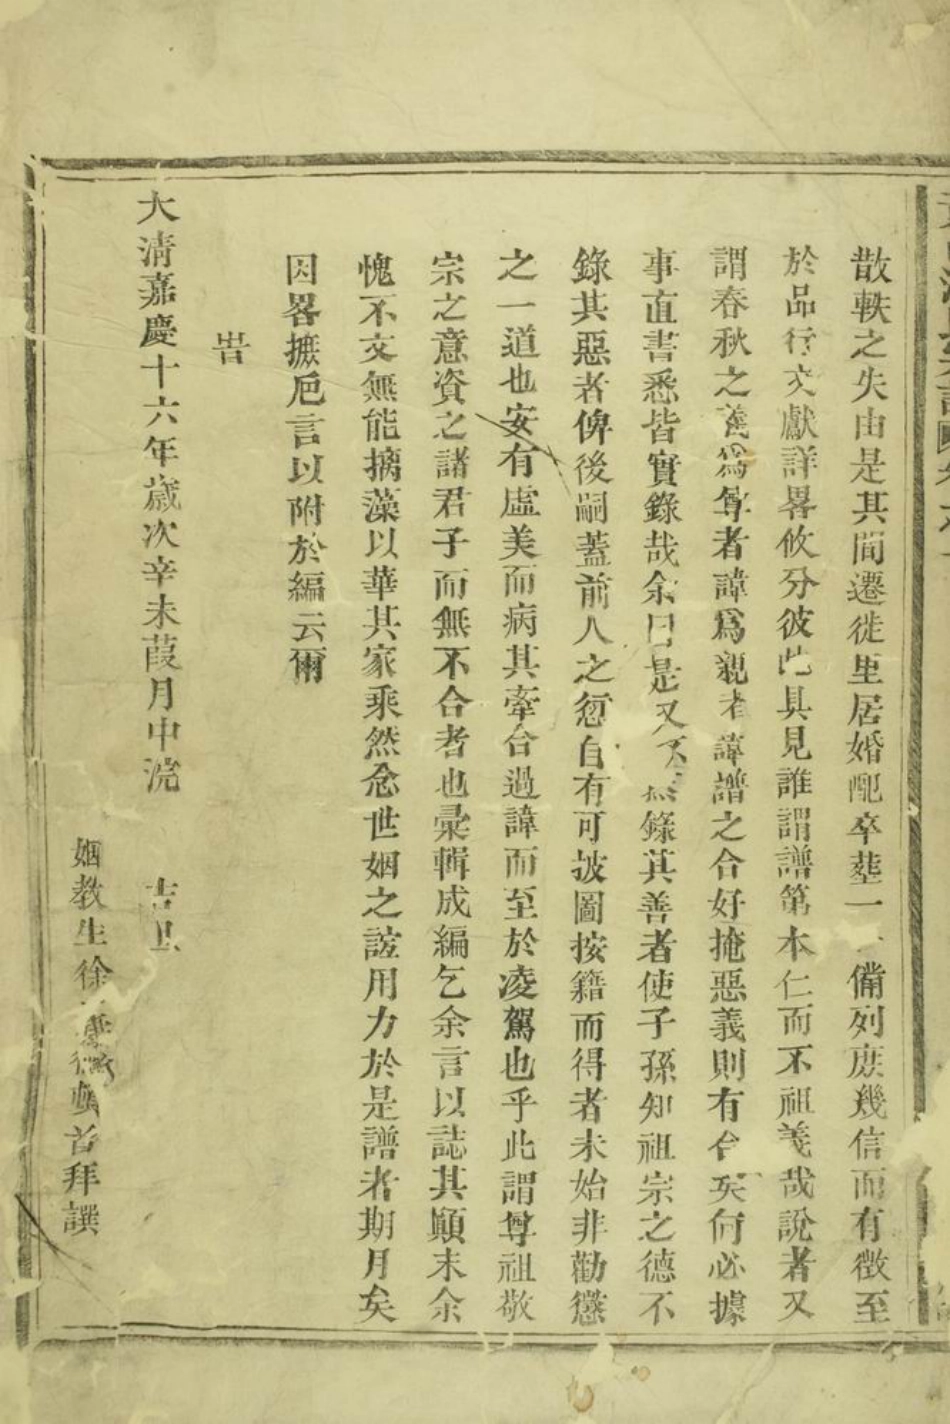 散軼之失由是其間遷徙里居婚配卒塟一一備列庶幾信而有徵至
於品行文獻詳畧攸分彼此具見誰謂譜第本仁而不祖義哉說者又
謂春秋之義為尊者諱爲親者諱譜之合好掩惡義則有合矣何必據
事直書悉皆實錄哉余曰是又不然錄其善者使子孫知祖宗之德不
錄其惡者俾後嗣蓋前人之愆自有可披圖按籍而得者未始非勸懲
之一道也安有虛美而病其牽合過諱而至於凌駕也乎此謂尊祖敬
宗之意資之諸君子而無不合者也彙輯成編乞余言以誌其顚末余
愧不文無能摛藻以華其家乘然念世姻之誼用力於是譜者期月矣
因畧摭巵言以附於編云爾
旹
大清嘉慶十六年歲次辛未葭月中浣 吉旦
姻教生徐頓首拜譔